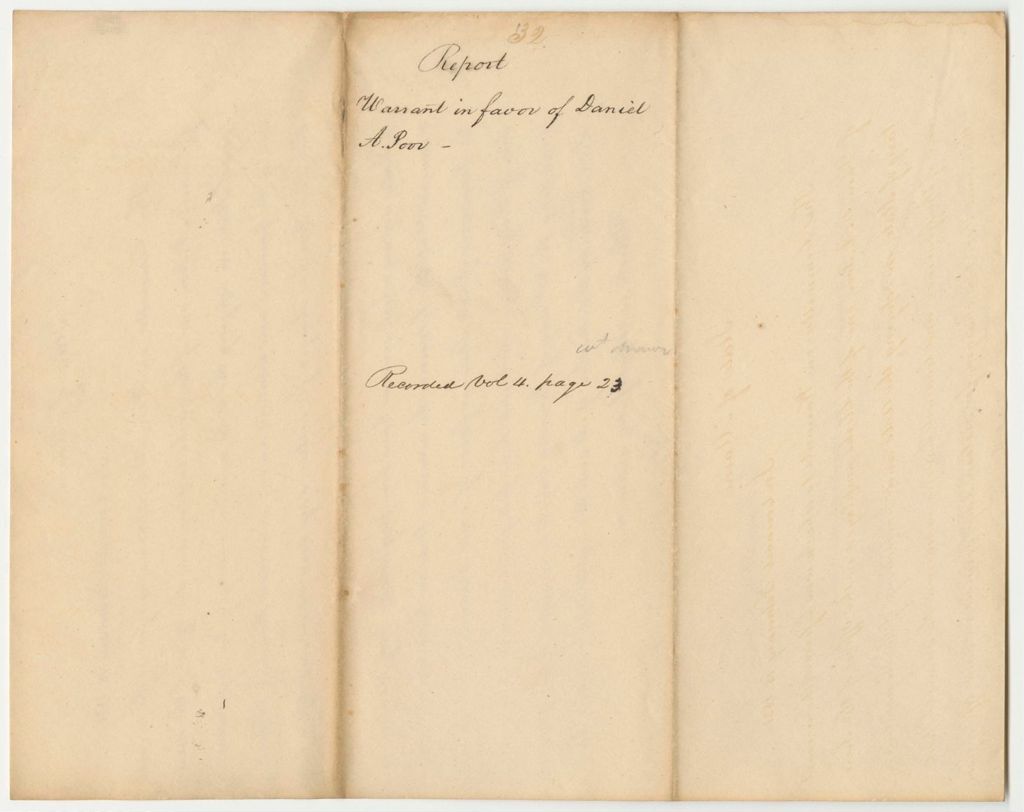 32
Report
Warrant in favor of Daniel
A. Poor -
Recorded Vol 4. page 23